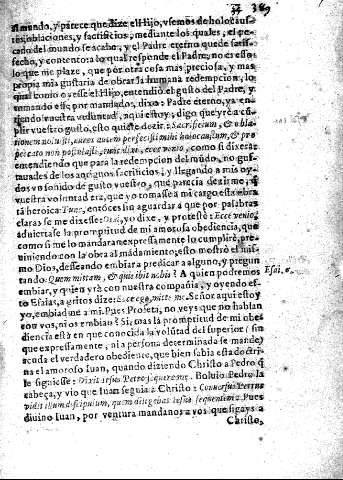 al mundo, y parece que dize el Hijo, vsemos de holocaus-
tos, oblaciones, y sacrificios, mediante los quales, el pe-
cado del mundo se acabe, y el Padre eterno quede satis-
fecho, y contento: a lo qual responde el Padre, no es esso
lo que me plaze, que por otra cosa mas preciosa, y mas
propia mia gustaria de obrar la humana redempcion, lo
qual como oyesse el Hijo, entendio el gusto del Padre, y
tomando esse por mandados, dixo: Padre eterno, ya en-
tiendo vuestra voluntad, aqui estoy; digo que yrè a cũ-
plir vuestro gusto, esto quiere dezir: Sacrificium, & obla-
tionem noluisti, aures autem perfecisti mihi holocaustum, & pro
peccato non postulasti, tunc dixi, ecce venio, como si dixera:
entendiendo que para la redempcion del mũdo, no gus-
tauades de los antiguos sacrificios, y llegando a mis oy-
dos vn sonido de gusto vuestro, que parecia dezirme, q̃
vuestra voluntad era, que yo tomasse a mi cargo esta obra
tã heroica: Tunc, entõces sin aguardar à que por palabras
claras se me dixesse: Dixi, yo dixe, y protestè: Ecce venio,
aduierta se la promptitud de mi amorosa obediencia, que
como si me lo mandaran expressamente lo cumplirè, pre-
uiniendo con la obra al mãdamiento; esto mostrò el mis-
mo Dios, desseando embiar a predicar a alguno, y pregun
tando: Quem mittam, & quis ibit nobis? A quien podremos
embiar, y quien yrà con nuestra compañia, y oyendo es-
to Esaias, a gritos dize: Ecce ego, mitte me. Señor aqui estoy
yo, embiadme a mi. Pues Profeta, no veys que no hablan
con vos, ni os embian? Si, mas la promptitud de mi obe-
diencia està en que conocida la volũtad del superior (sin
que expressamente, ni a persona determinada se mande)
acuda el verdadero obediente, que bien sabia esta doctri-
na el amoroso Iuan, quando diziendo Christo a Pedro q̃
le siguiesse: Dixit Iesus Petro sequere me. Boluio Pedro la
cabeça, y vio que Iuan seguia a Christo: Conuersus Petrus
vidit illum discipulum, quem diligebat Iesus sequentem: Pues
diuino Iuan, por ventura mandanos a vos que sigays a
Christo,
Esai. 6.